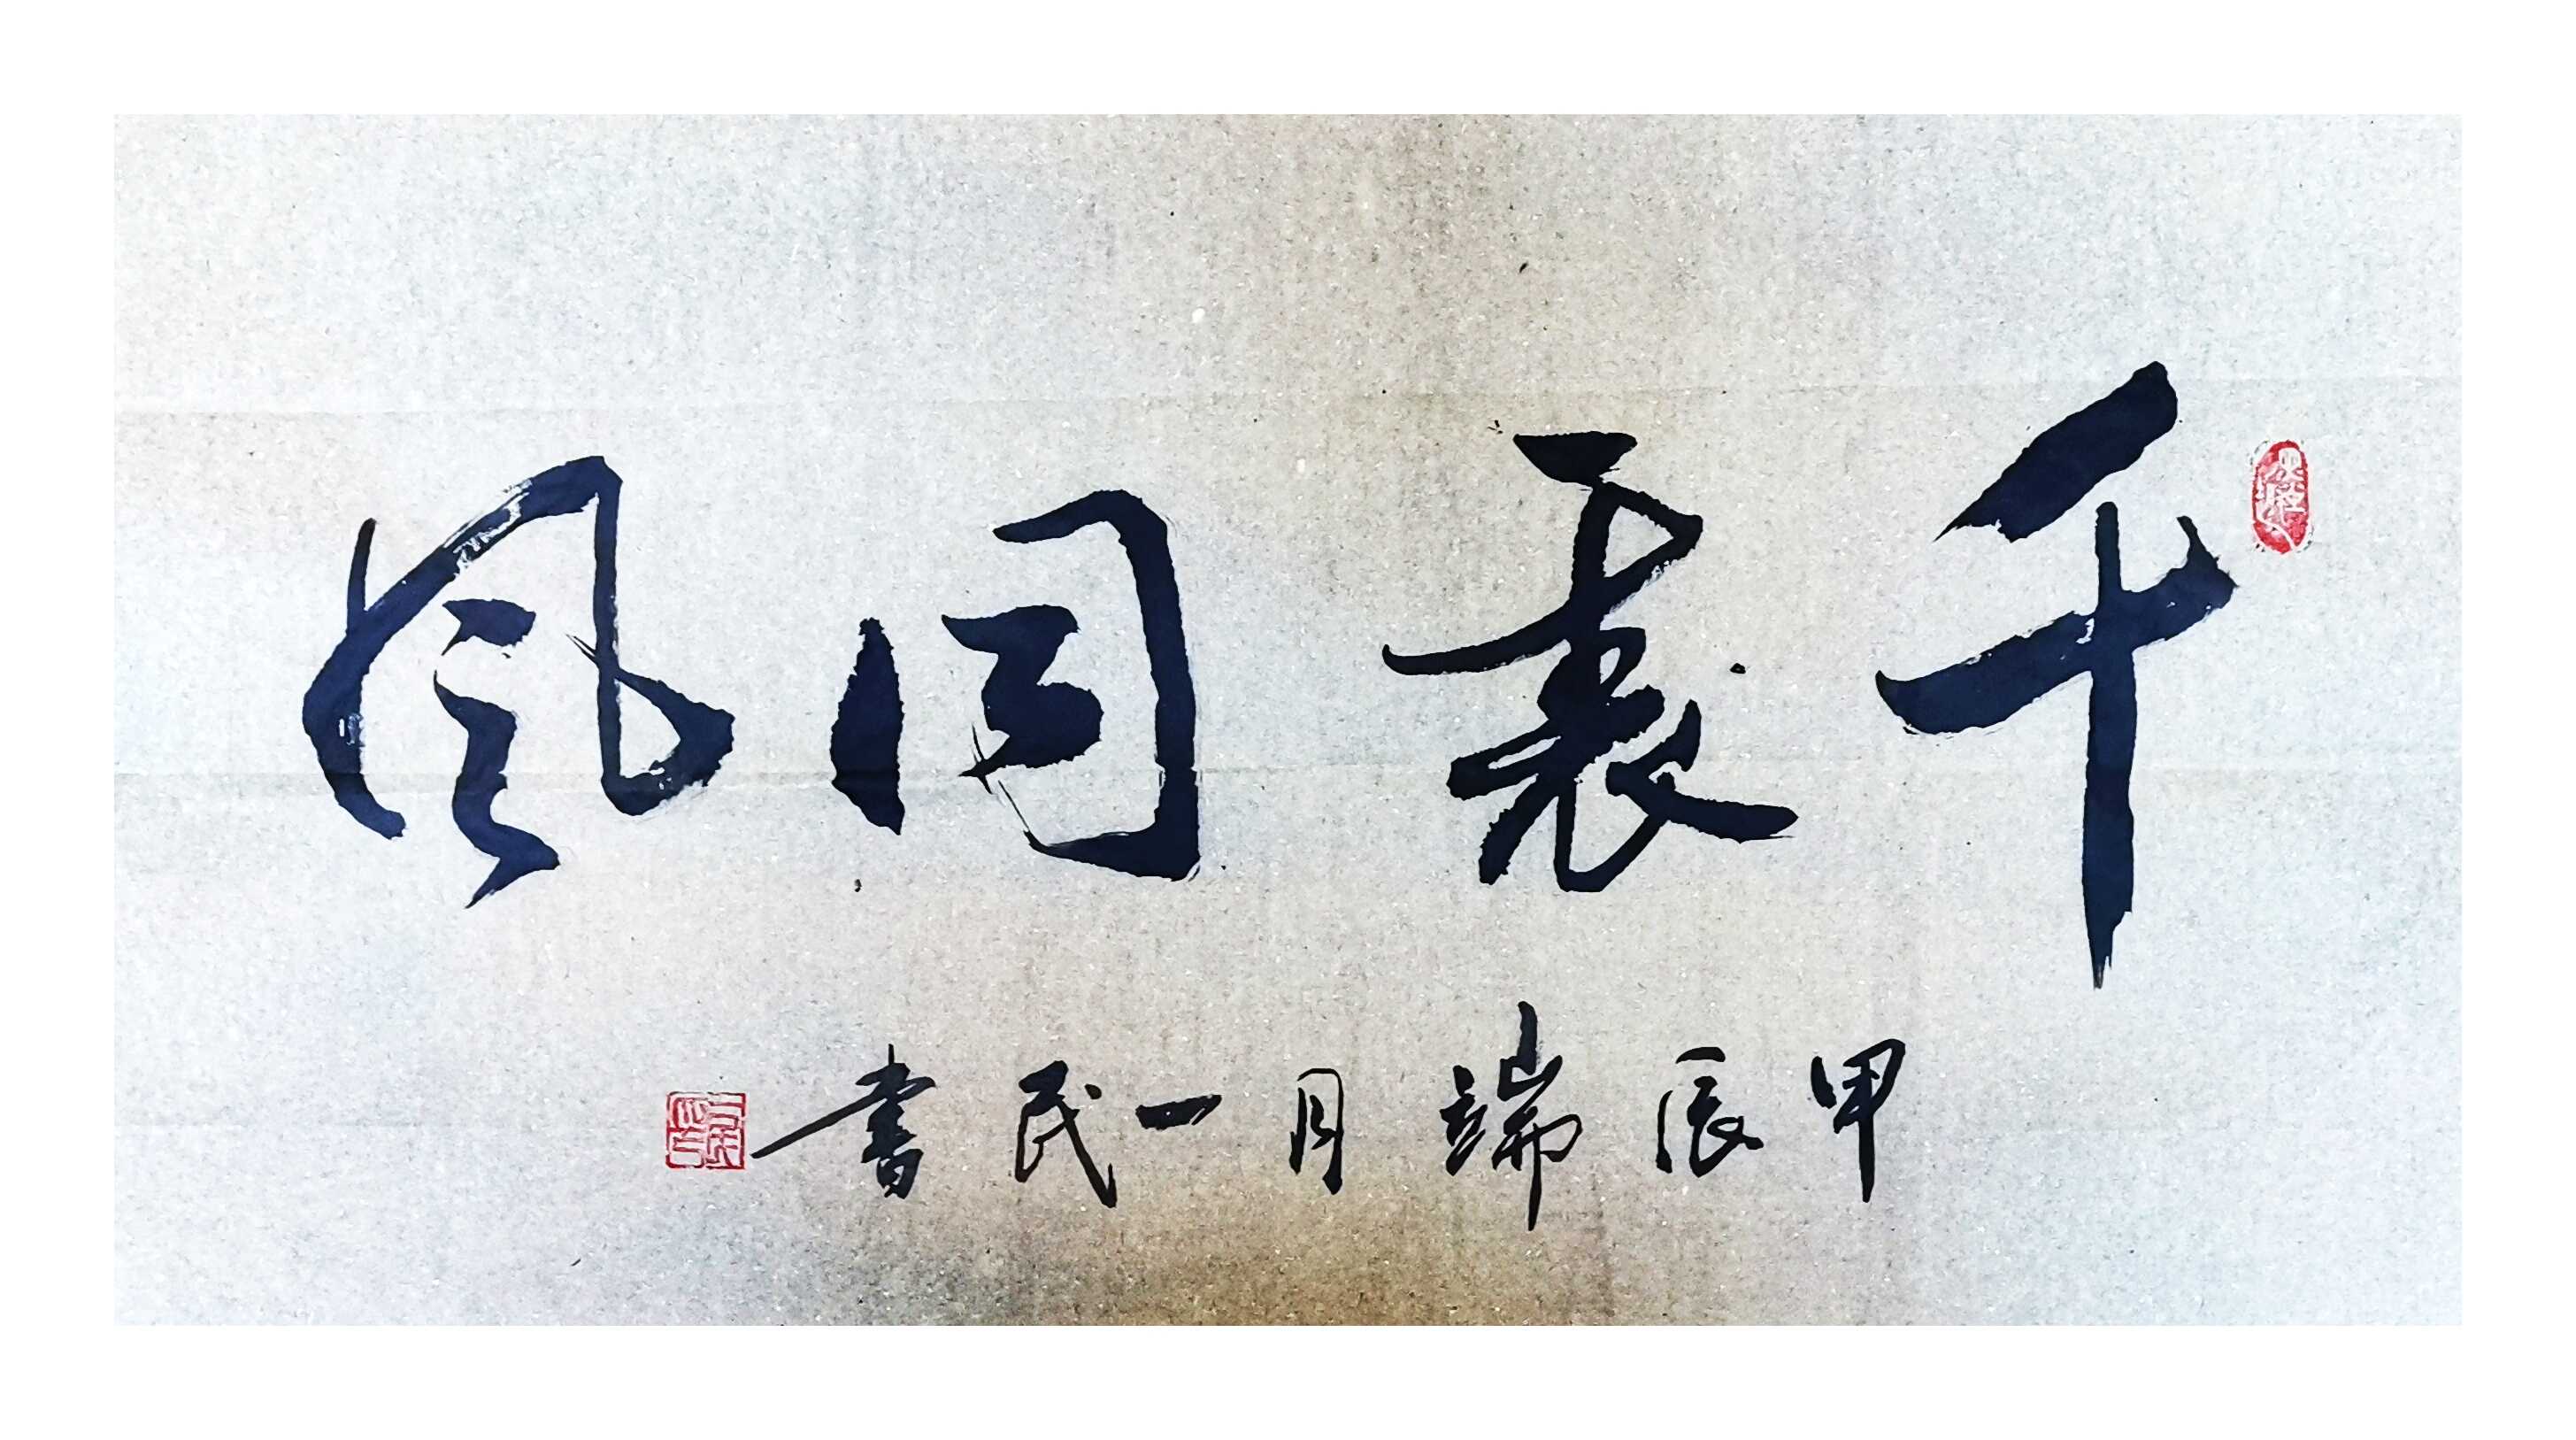 千裏同風
甲辰端月一民書